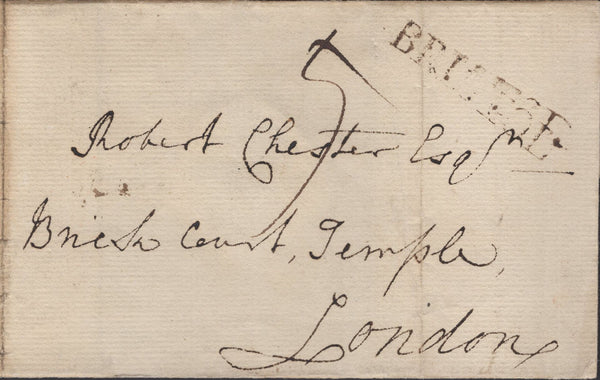 5
Robert Chester Esqr
Brick Court, Temple,
London